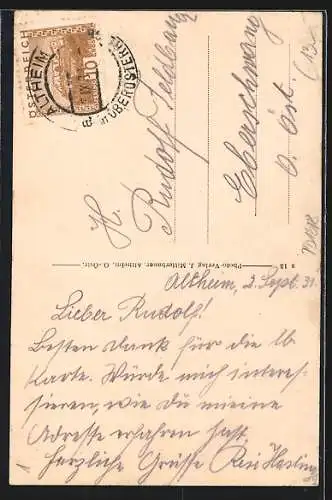 ÖSTERREICH
10
ALTHEIM
OBERÖSTERR.
H.
Rudolf
Eberschwang
O. Öst.
Photo-Verlag J. Mitterbauer, Altheim, O.-Östr.
Altheim, 2. Sept. 31.
Lieber Rudolf!
Besten Dank für die lb
Karte. Würde mich interes-
sieren, wie du meine
Adresse erfahren hast.
Herzliche Grüsse Resi